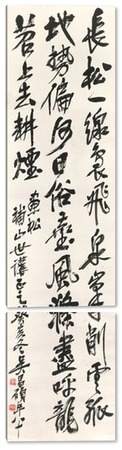 長松一線裊飛泉峯削雲孤
地勢偏何日俗塵風滌盡呼龍
苕上去耕煙
畫松
山世講正之癸亥冬吳昌碩年八十